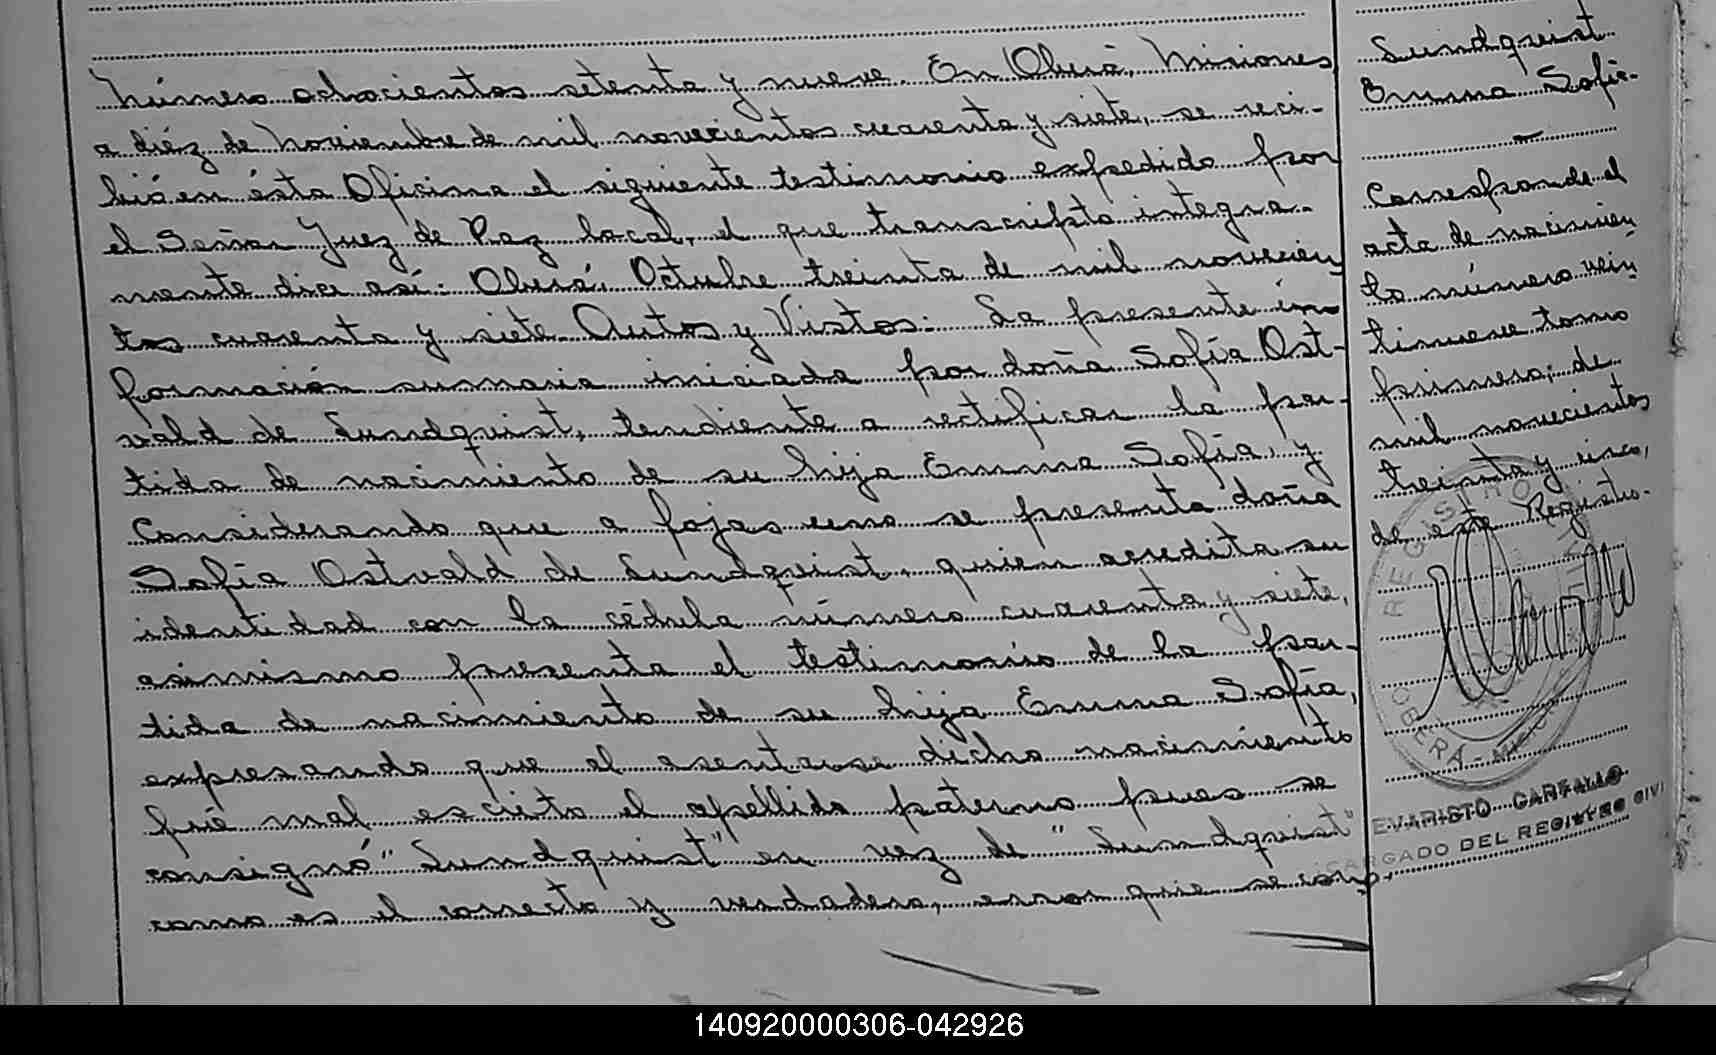 Número ochocientos setenta y nueve. En Oberá, Misiones
a diéz de Noviembre de mil novecientos cuarenta y siete, se reci-
bió en ésta Oficina el siguiente testimonio expedido por
el Señor Juez de Paz local, el que transcripto integra-
mente dice así: Oberá, Octubre treinta de mil novecien
tos cuarenta y siete Autos y Vistos: La presente in
formación sumaria iniciada por doña Sofía Ost-
vald de Sundquist, tendiente a rectificar la par-
tida de nacimiento de su hija Emma Sofía, y
Considerando que a fojas uno se presenta doña
Sofía Ostvald de Sundquist, quien acredita su
identidad con la cédula número cuarenta y siete,
asimismo presenta el testimonio de la par-
tida de nacimiento de su hija Emma Sofía,
expresando que al asentarse dicho nacimiento
fué mal escrito el apellido paterno pues se
consignó "Sundquist" en vez de "Sundquist"
como es el correcto y verdadero, error que se com
Sundquist
Emma Sofía-
Corresponde al
acta de nacimien
to número vein
tinueve tomo
primero; de
mil novecientos
treinta y cinco,
de este Registro-
REGISTRO
OBERÁ - MISIONES
EVARISTO CARVALLO
ENCARGADO DEL REGISTRO CIVIL
140920000306-042926